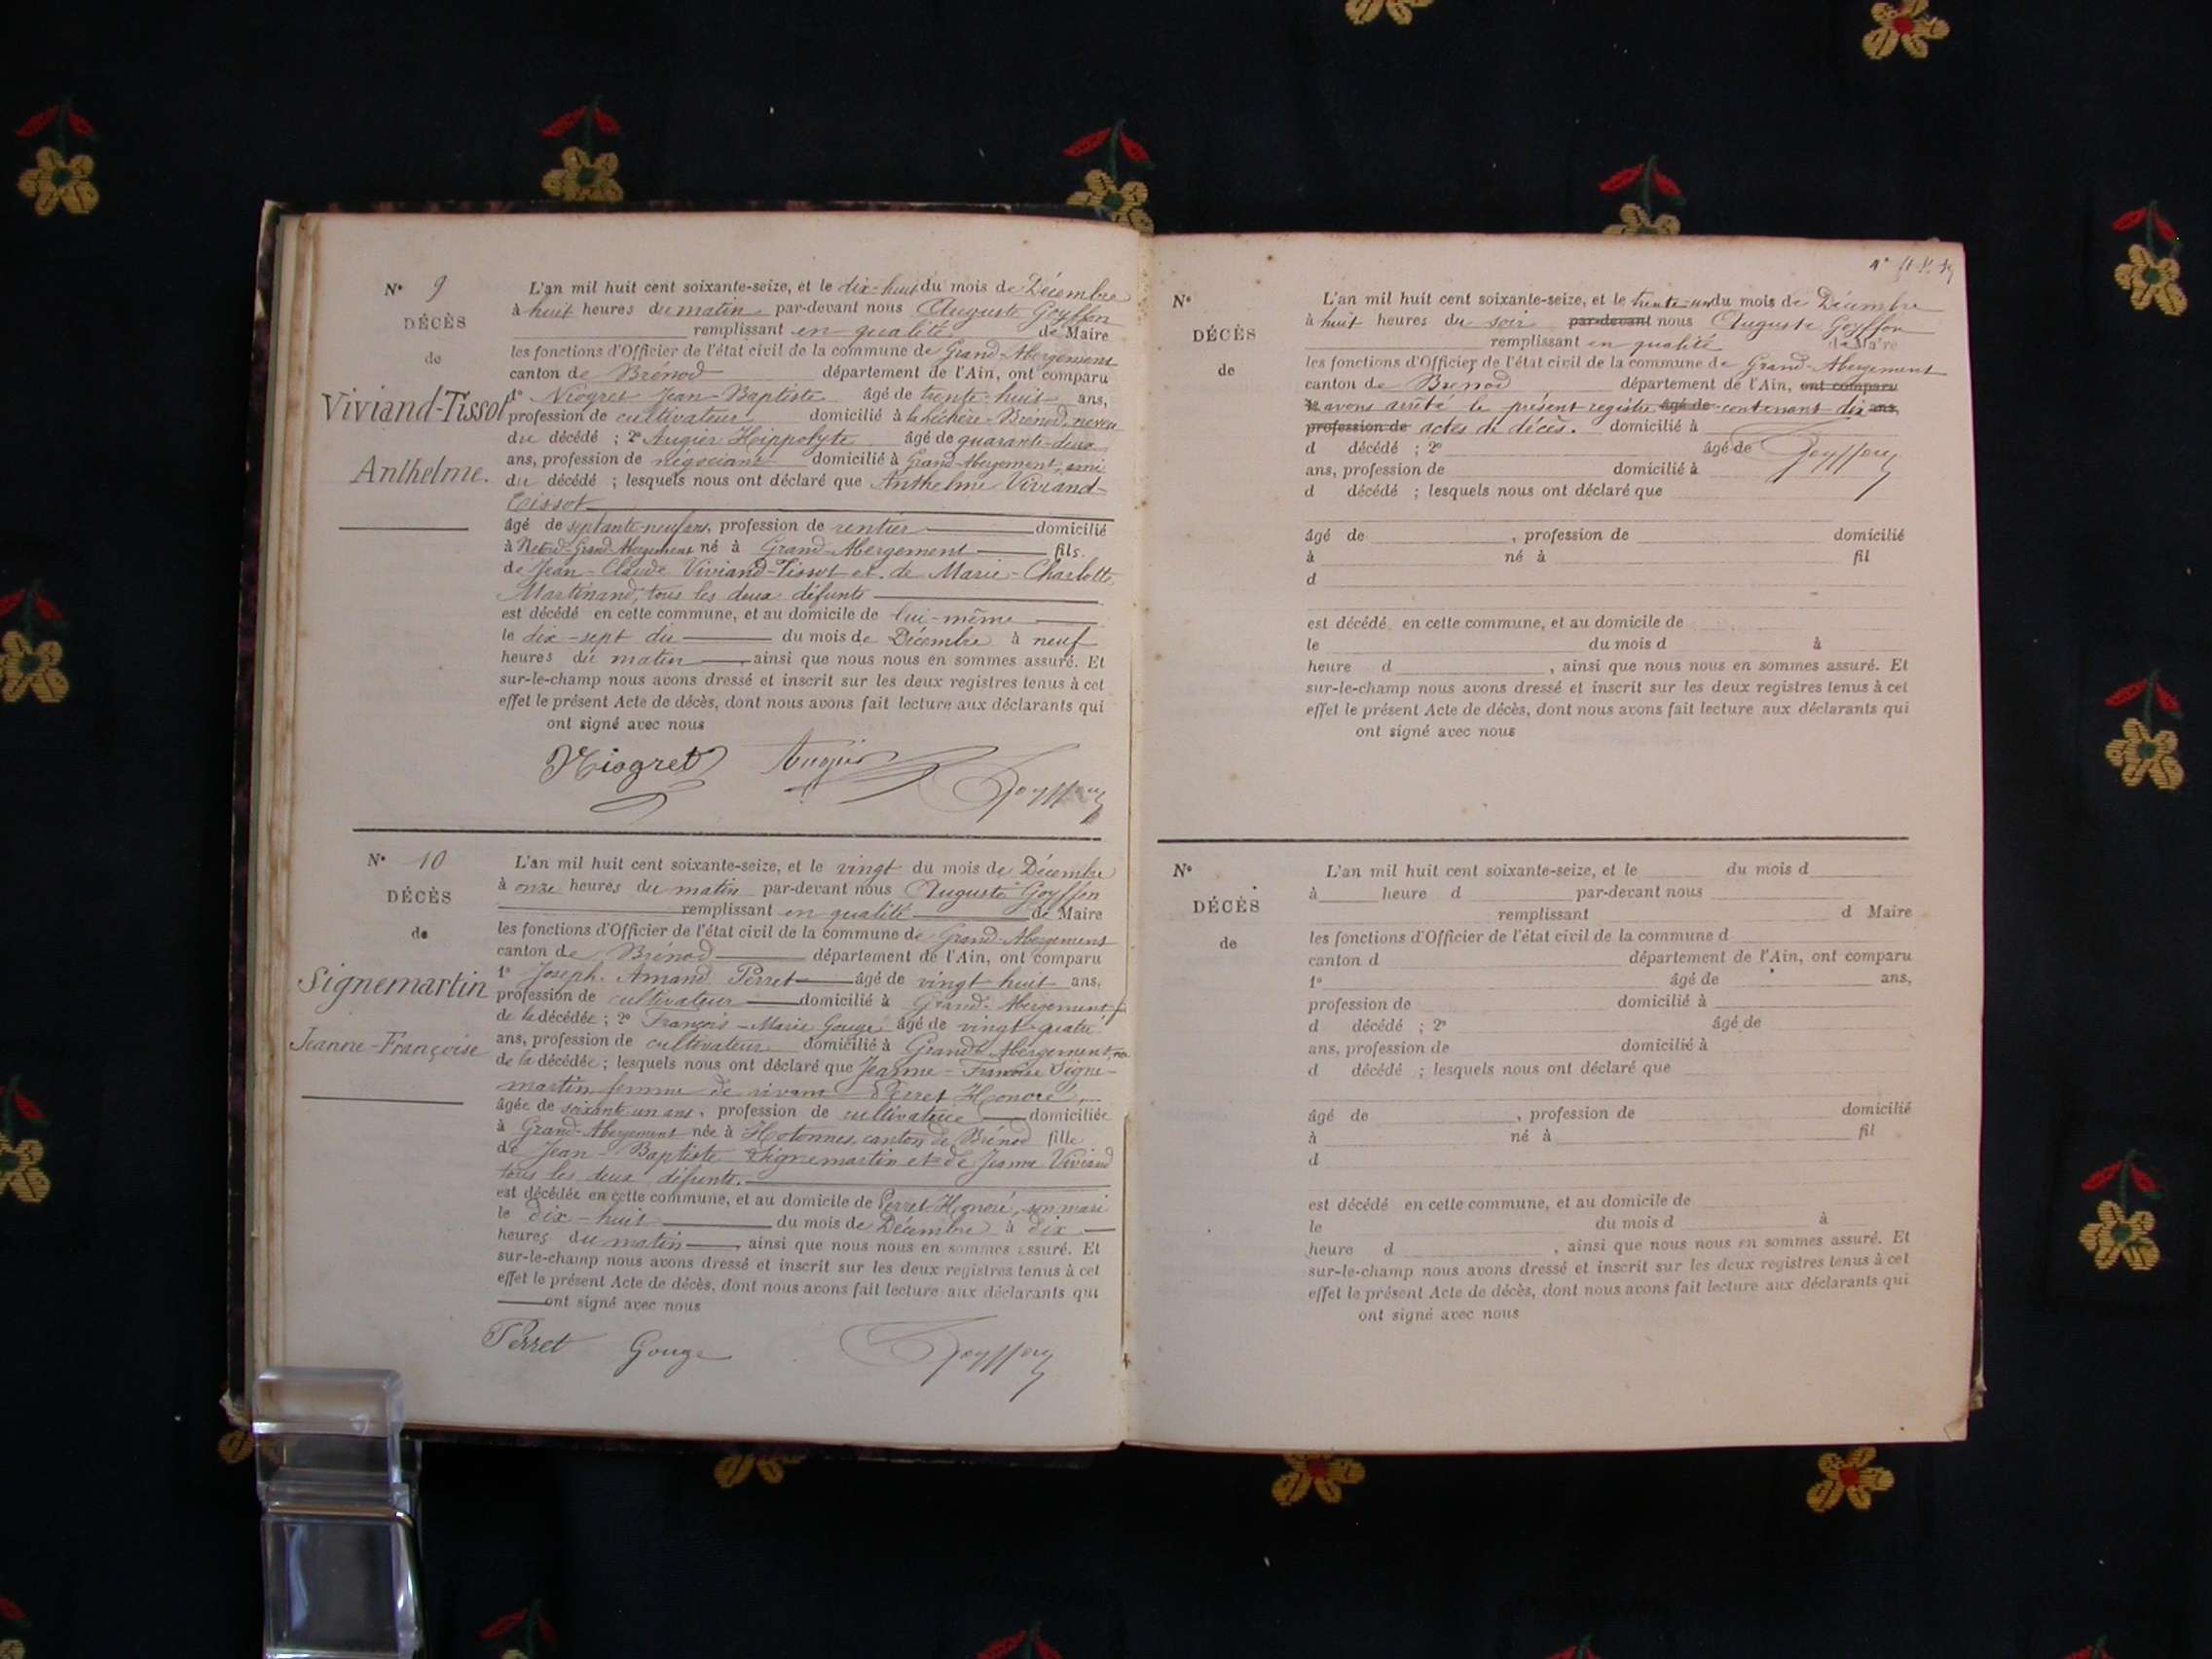 N° 9
DÉCÈS
de
Viviand-Tissot
Anthelme.
L'an mil huit cent soixante-seize, et le dix-huit du mois de Décembre
à huit heures du matin par-devant nous Auguste Goyffon
remplissant en qualité de Maire
les fonctions d'Officier de l'état civil de la commune de Grand-Abergement
canton de Brénod département de l'Ain, ont comparu
1° Niogret Jean-Baptiste âgé de trente-huit ans,
profession de cultivateur domicilié à Brénod, neveu
du décédé ; 2° Augier Hippolyte âgé de quarante-deux
ans, profession de négociant domicilié à Grand-Abergement, ami
du décédé ; lesquels nous ont déclaré que Anthelme Viviand-
Tissot
âgé de septante neuf ans, profession de rentier domicilié
à Grand-Abergement né à Grand-Abergement fils
de Jean-Claude Viviand-Tissot et de Marie-Charlotte
Martinand, tous les deux défunts
est décédé en cette commune, et au domicile de lui-même
le dix-sept du du mois de Décembre à neuf
heures du matin, ainsi que nous nous en sommes assuré. Et
sur-le-champ nous avons dressé et inscrit sur les deux registres tenus à cet
effet le présent Acte de décès, dont nous avons fait lecture aux déclarants qui
ont signé avec nous
Niogret Augier Goyffon
N° 10
DÉCÈS
de
Signemartin
Jeanne-Françoise
L'an mil huit cent soixante-seize, et le vingt du mois de Décembre
à onze heures du matin par-devant nous Auguste Goyffon
remplissant en qualité de Maire
les fonctions d'Officier de l'état civil de la commune de Grand-Abergement
canton de Brénod département de l'Ain, ont comparu
1° Joseph Amand Perret âgé de vingt huit ans,
profession de cultivateur domicilié à Grand-Abergement
de la décédée ; 2° François-Marie Gouge âgé de vingt-quatre
ans, profession de cultivateur domicilié à Grand-Abergement,
de la décédée ; lesquels nous ont déclaré que Jeanne-Françoise Signe-
martin femme de vivant Perret Honoré,
âgée de soixante un ans, profession de cultivatrice domiciliée
à Grand-Abergement née à Hotonnes, canton de Brénod fille
de Jean-Baptiste Signemartin et de Jeanne Viviand
tous les deux défunts.
est décédée en cette commune, et au domicile de Perret Honoré, son mari
le dix-huit du mois de Décembre à dix
heures du matin, ainsi que nous nous en sommes assuré. Et
sur-le-champ nous avons dressé et inscrit sur les deux registres tenus à cet
effet le présent Acte de décès, dont nous avons fait lecture aux déclarants qui
ont signé avec nous
Perret Gouge Goyffon
N°
DÉCÈS
de
L'an mil huit cent soixante-seize, et le trente-un du mois de Décembre
à huit heures du soir par-devant nous Auguste Goyffon
remplissant en qualité de Maire
les fonctions d'Officier de l'état civil de la commune de Grand-Abergement
canton de Brénod département de l'Ain, ont comparu
1° avons arrêté le présent registre âgé de contenant dix ans,
profession de actes de décès. domicilié à
d décédé ; 2° âgé de Goyffon
ans, profession de domicilié à
d décédé ; lesquels nous ont déclaré que
âgé de , profession de domicilié
à né à fil
d
est décédé en cette commune, et au domicile de
le du mois d à
heure d , ainsi que nous nous en sommes assuré. Et
sur-le-champ nous avons dressé et inscrit sur les deux registres tenus à cet
effet le présent Acte de décès, dont nous avons fait lecture aux déclarants qui
ont signé avec nous
N°
DÉCÈS
de
L'an mil huit cent soixante-seize, et le du mois d
à heure d par-devant nous
remplissant d Maire
les fonctions d'Officier de l'état civil de la commune d
canton d département de l'Ain, ont comparu
1° âgé de ans,
profession de domicilié à
d décédé ; 2° âgé de
ans, profession de domicilié à
d décédé ; lesquels nous ont déclaré que
âgé de , profession de domicilié
à né à fil
d
est décédé en cette commune, et au domicile de
le du mois d à
heure d , ainsi que nous nous en sommes assuré. Et
sur-le-champ nous avons dressé et inscrit sur les deux registres tenus à cet
effet le présent Acte de décès, dont nous avons fait lecture aux déclarants qui
ont signé avec nous